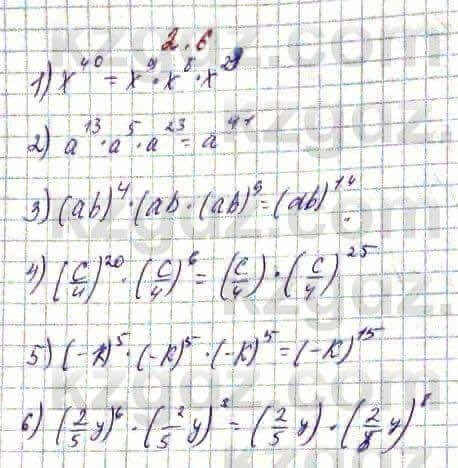 2.6
1) x^40 = x^9 · x^8 · x^23
2) a^13 · a^5 · a^23 = a^41
3) (ab)^4 · (ab · (ab)^9 = (ab)^14
4) (c/4)^20 · (c/4)^6 = (c/4) · (c/4)^25
5) (-k)^5 · (-k)^5 · (-k)^5 = (-k)^15
6) (2/5 y)^6 · (2/5 y)^3 = (2/5 y) · (2/5 y)^8